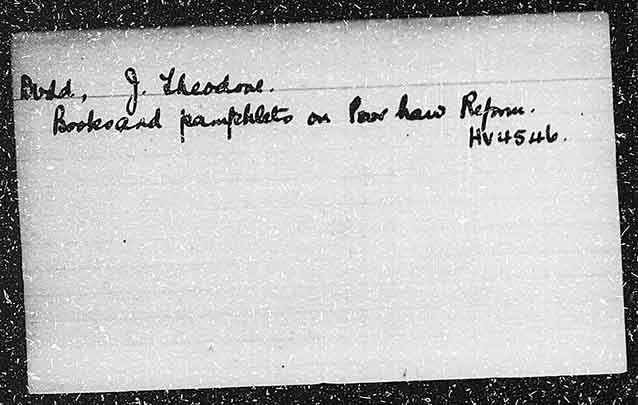 Dodd, J. Theodore.
Books and pamphlets on Poor Law Reform.
HV4546.